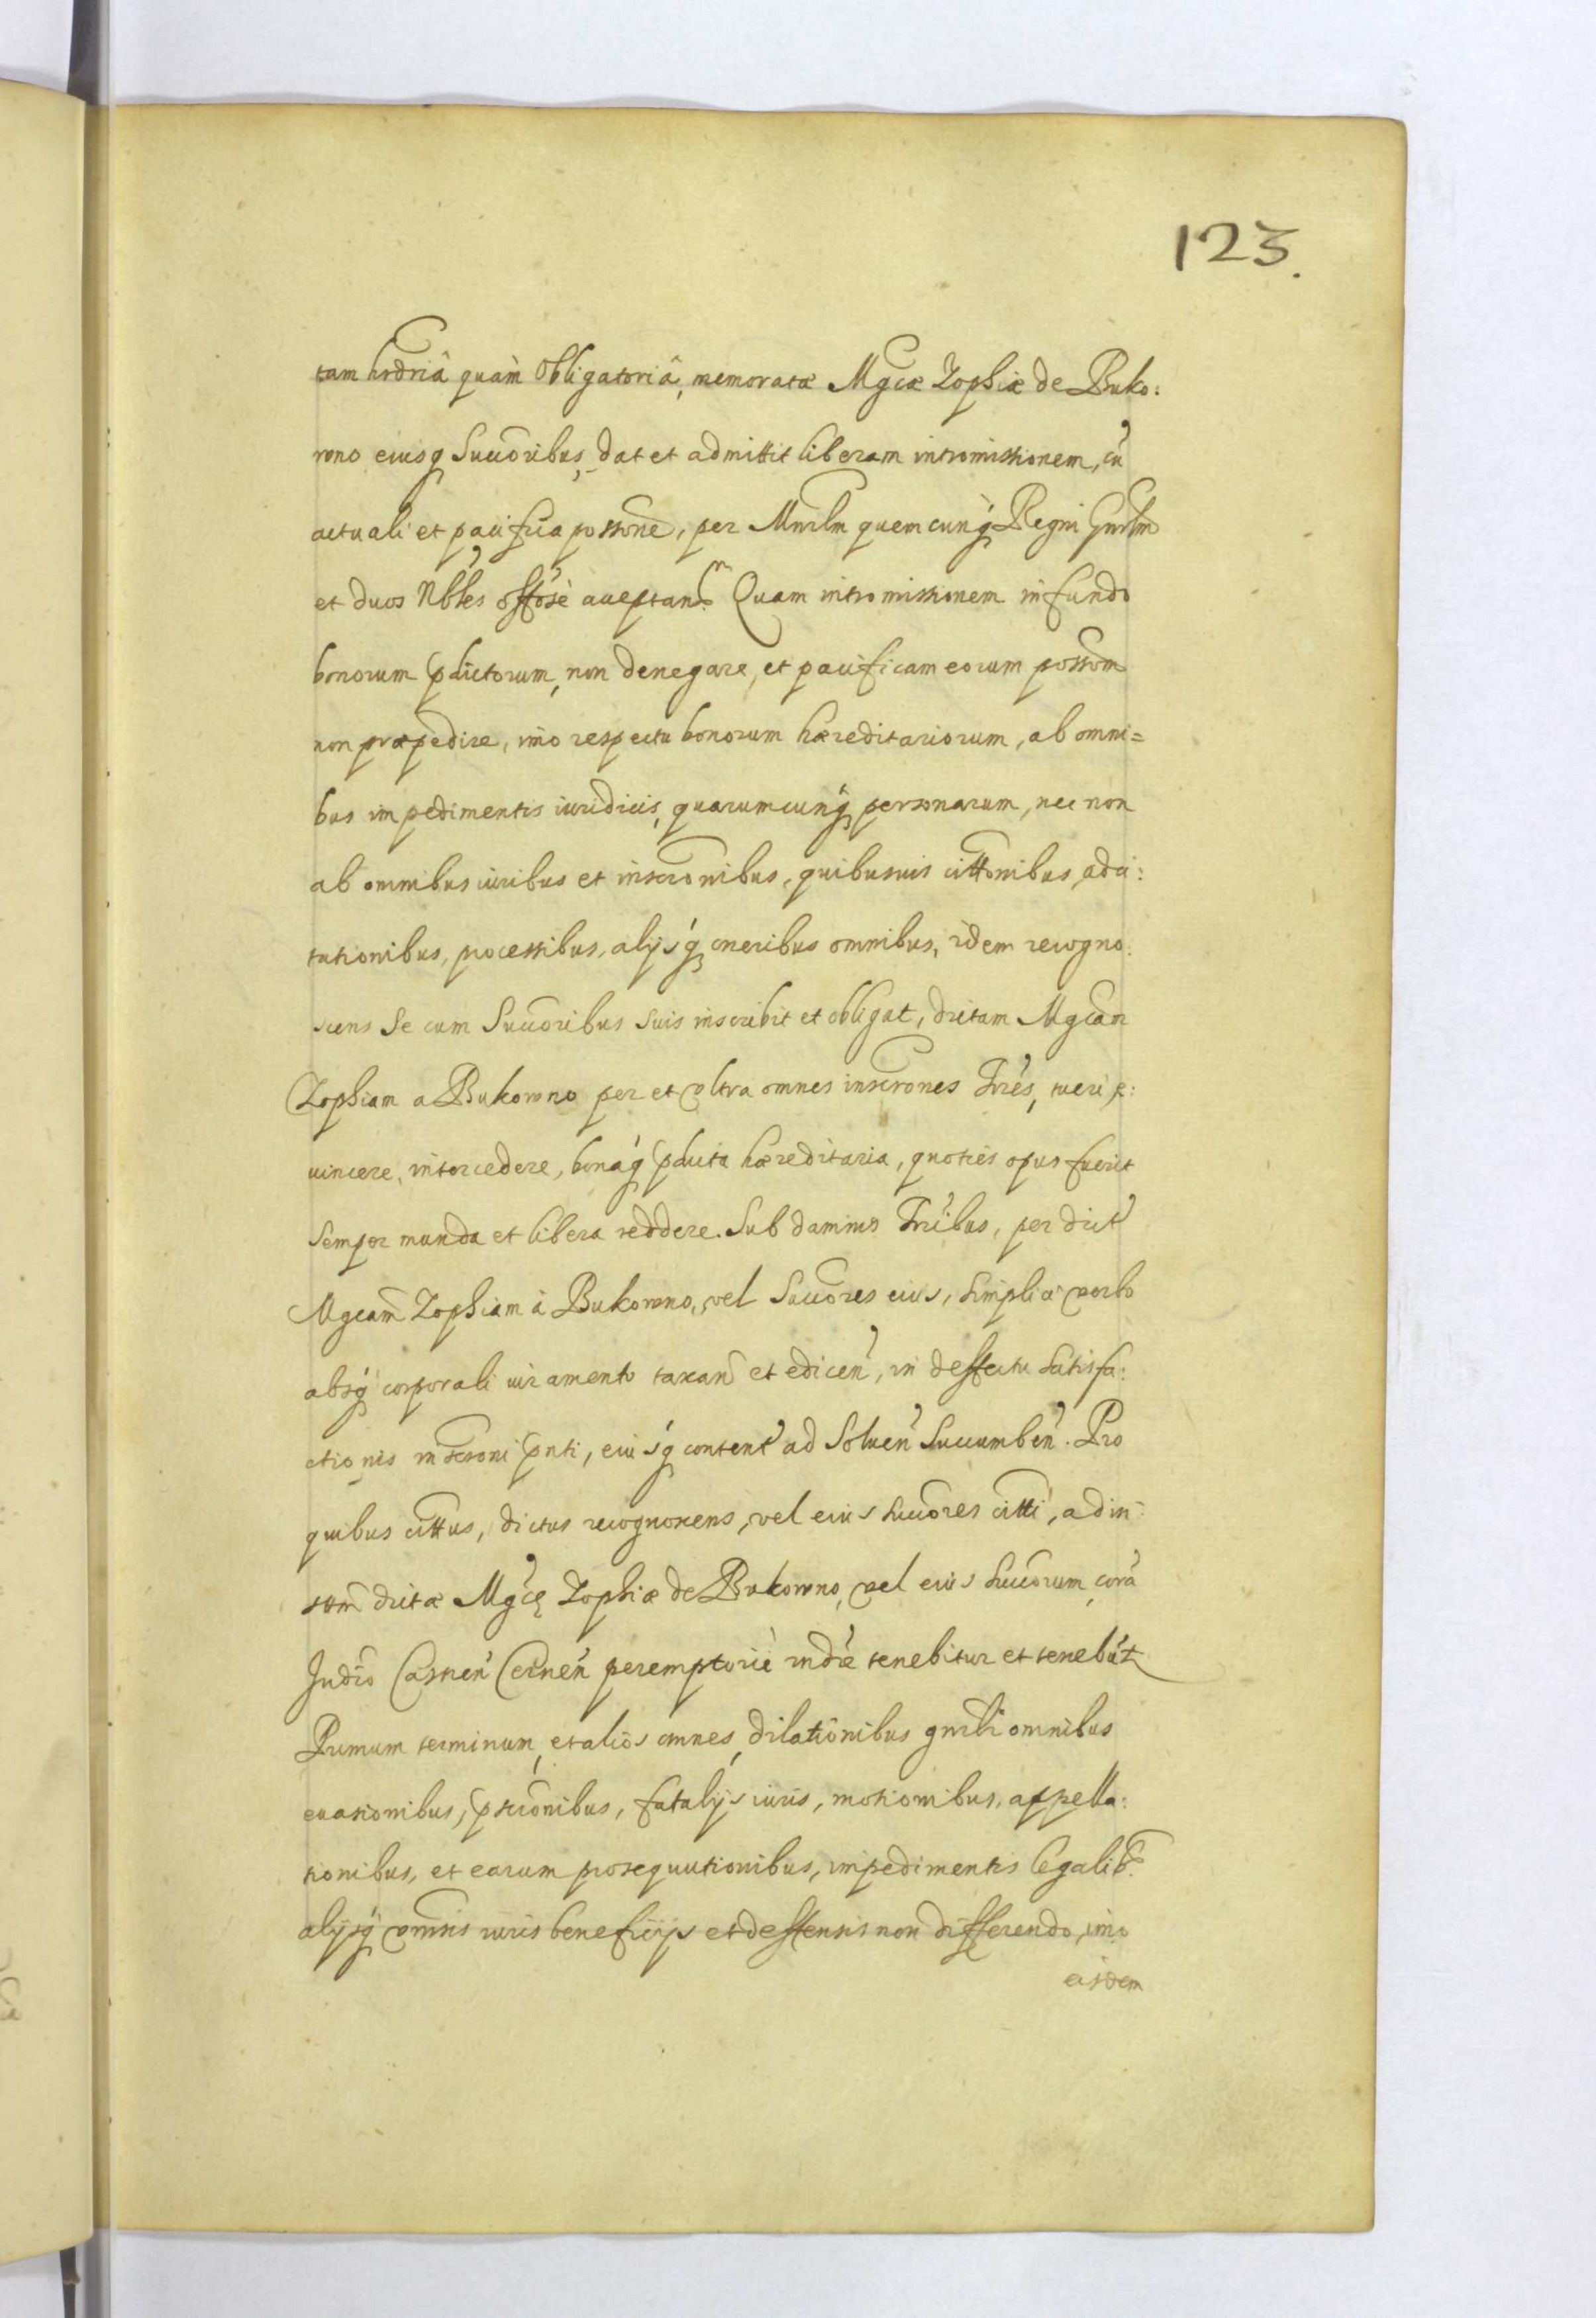 123.
tam hrdriâ quàm Obligatoriâ, memoratæ Mgcæ Zophiæ de Buko:
wno eiusq Succoribus, dat et admittit liberam intromissionem, cū
actuali et pacifica possone, per Mnrlm quemcunq Regni Gnrlm
et duos Nobles offosè acceptand. Quam intromissionem in fundo
bonorum pdictorum, non denegare, et pacificam eorum possom
non præpedire, imo respectu bonorum hæreditariorum, ab omni=
bus impedimentis iuridicis, quarumcunq personarum, nec non
ab omnibus iuribus et inscronibus, quibusuis cittonibus, adci:
tationibus, processibus, alijsq oneribus omnibus, idem recogno:
scens Se cum Succoribus suis inscribit et obligat, dictam Mgcam
Zophiam a Bukowno per et vltra omnes inscrones Trrēs, tueri e:
uincere, intercedere, bonaq pdicta hæreditaria, quoties opus fuerit
semper munda et libera reddere. Sub damnis Trribus, per dict
Mgcam Zophiam à Bukowno, vel Succores eius, simplici verbo
absq corporali iuramento taxan et edicen, in deffectu satisfa:
ctionis inscroni pnti, eiusq content ad Soluen Succumben. Pro
quibus cittus, dictus recognoscens, vel eius succores citti, ad in
stom dictæ Mgcę Zophiæ de Bukowno, vel eius succorum, corā
Judio Castren Cernen peremptoriè rndre tenebitur et tenebut
Primum terminum, et alios omnes, dilationibus gnrlr omnibus
euasionibus, pscronibus, fatalijs iuris, motionibus, appella:
tionibus, et earum prosequutionibus, impedimentis legalib.
alijsq omnis iuris beneficijs et deffensis non differendo, imo
eisdem